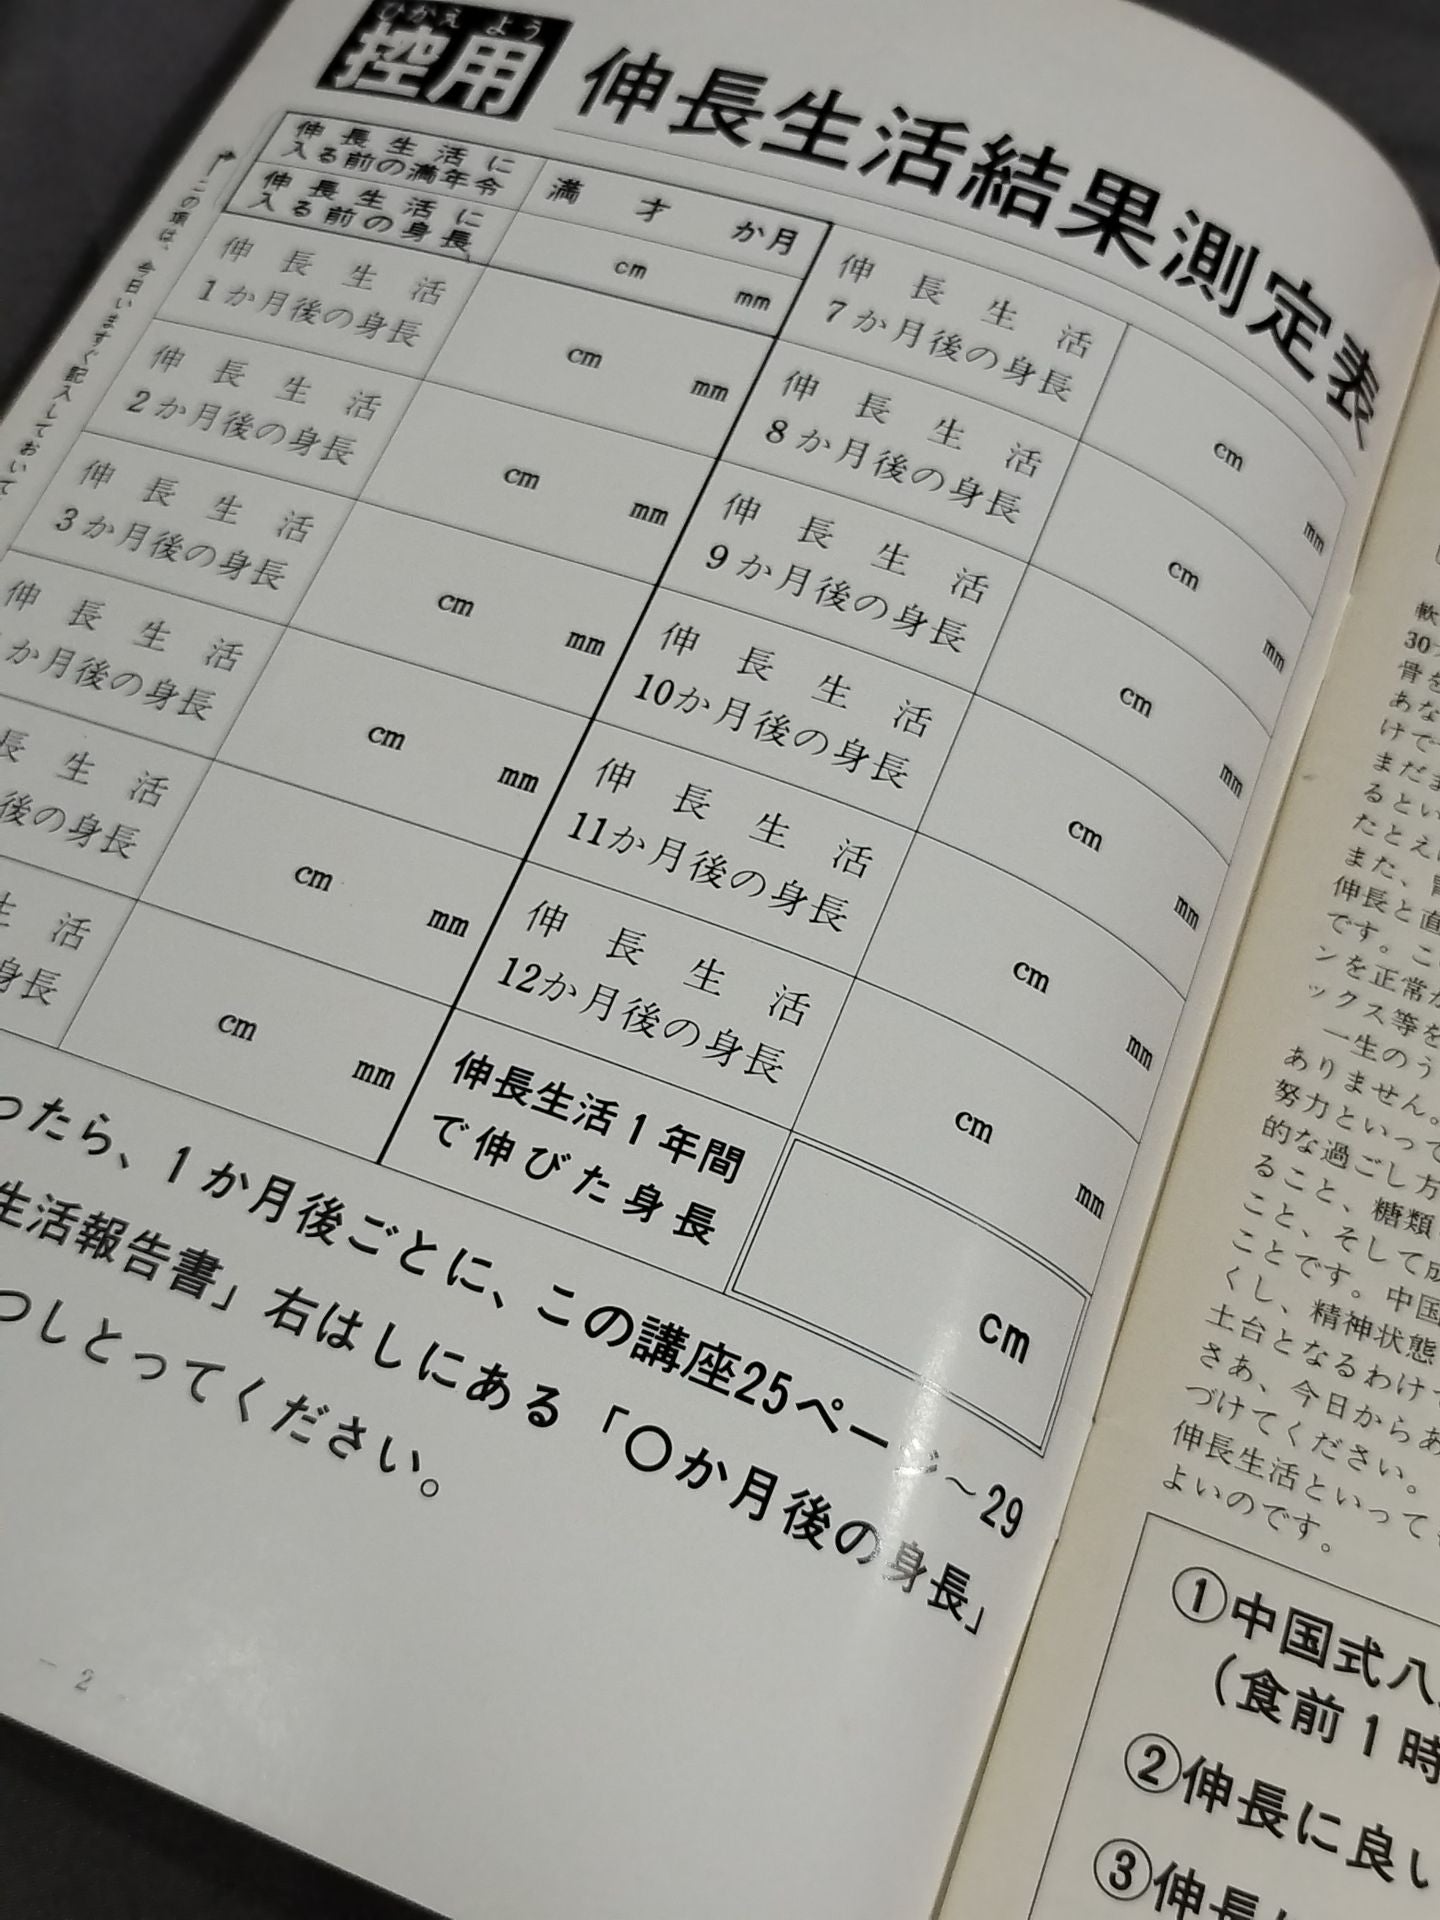 ひかえ よう
控用 伸長生活結果測定表
伸長生活に
入る前の満年令
満 才 か月
伸長生活に
入る前の身長
cm mm
この項は、今日いますぐ記入しておいて
伸長生活
1か月後の身長
cm mm
伸長生活
2か月後の身長
cm mm
伸長生活
3か月後の身長
cm mm
伸長生活
か月後の身長
cm mm
長生活
後の身長
cm mm
生活
身長
cm mm
伸長生活
7か月後の身長
cm mm
伸長生活
8か月後の身長
cm mm
伸長生活
9か月後の身長
cm mm
伸長生活
10か月後の身長
cm mm
伸長生活
11か月後の身長
cm mm
伸長生活
12か月後の身長
cm mm
伸長生活1年間
で伸びた身長
cm
ったら、1か月後ごとに、この講座25ページ〜29
生活報告書」右はしにある「〇か月後の身長」
つしとってください。
— 2 —
軟
30
骨を
あな
けで
まだま
るとい
たとえ
また、
伸長と直
です。こ
ンを正常
ックス等を
一生のう
ありません。
努力といって
的な過ごし方
ること、糖類
こと、そして成
ことです。中国
くし、精神状態
土台となるわけ
さあ、今日からあ
づけてください。
伸長生活といって
よいのです。
①中国式八
(食前1時
②伸長に良い
③伸長